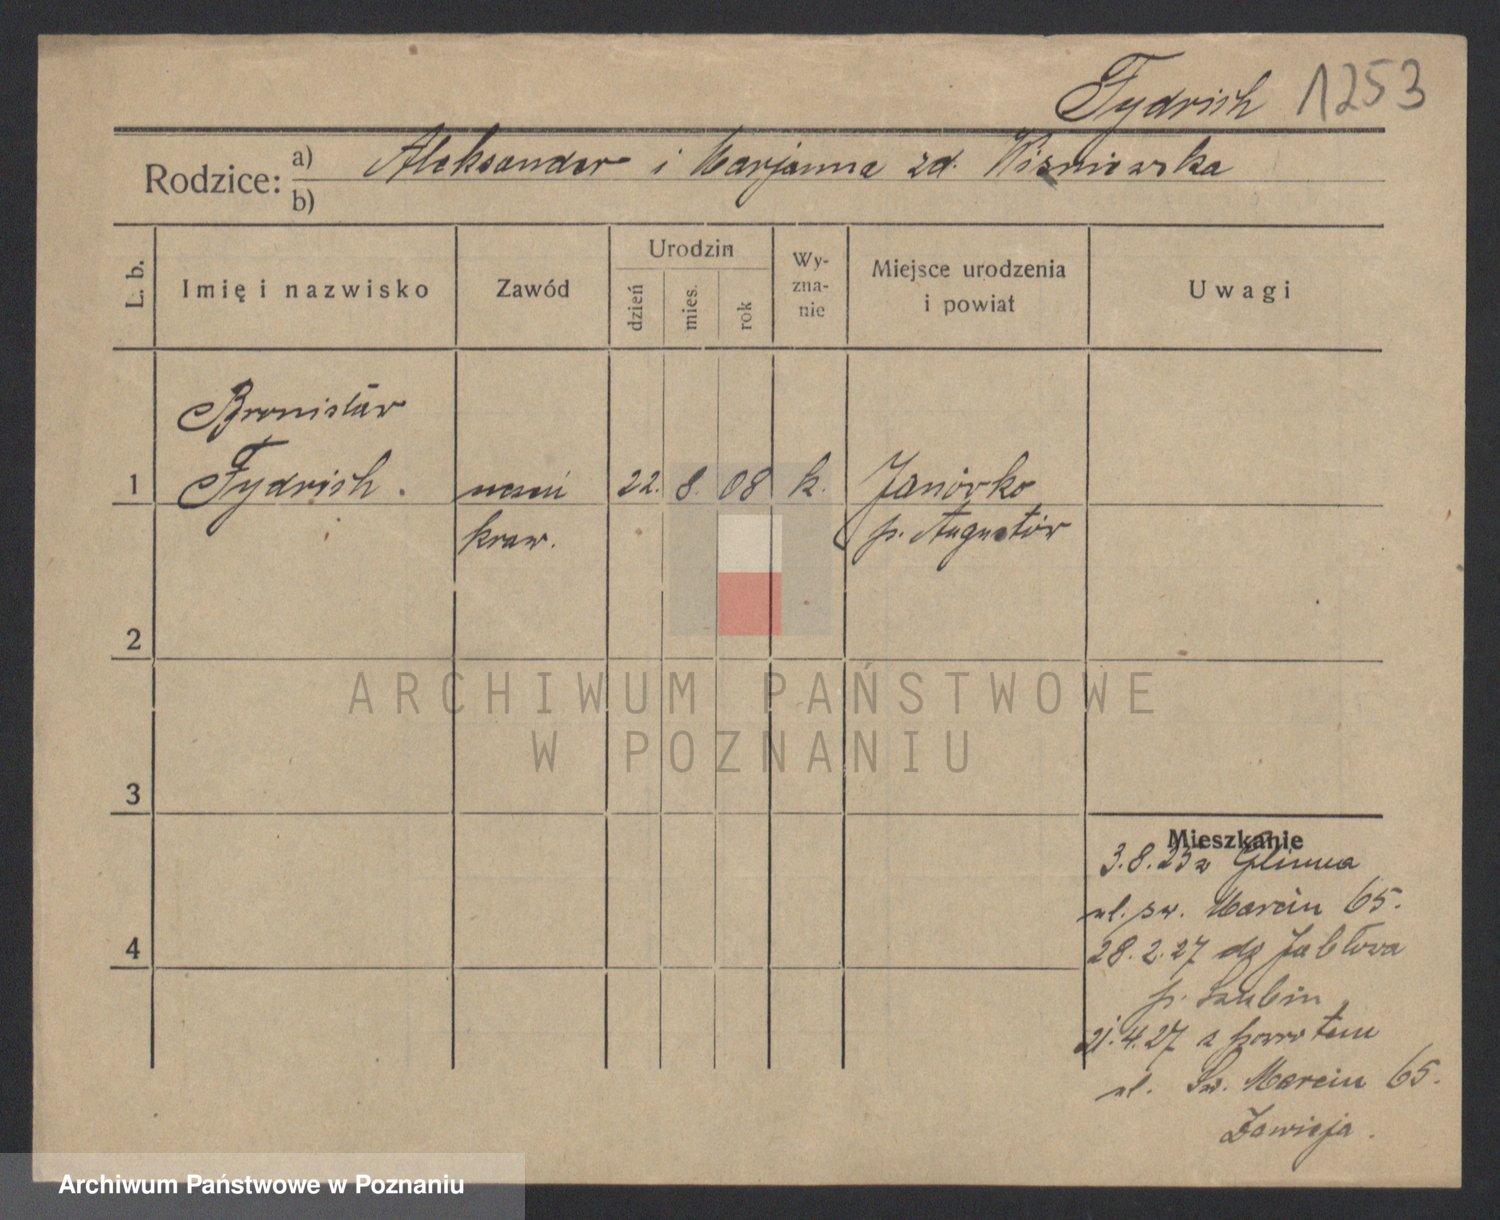 Fydrich 1253
Rodzice: a) Aleksander i Marjanna zd. Wiśniewska
b)
L. b.
Imię i nazwisko
Zawód
Urodzin
dzień
mies.
rok
Wy-
zna-
nie
Miejsce urodzenia
i powiat
Uwagi
Bronisław
1 Fydrich. uczeń 22. 8. 08 k. Janówko
kraw. p. Augustów
2
3
4
Mieszkanie
3.8.25 z Glinna
ul. św. Marcin 65.
28.2.27 do Jabłowa
p. Szubin
21.4.27 z powrotem
ul. Św. Marcin 65.
ARCHIWUM PAŃSTWOWE
W POZNANIU
Archiwum Państwowe w Poznaniu